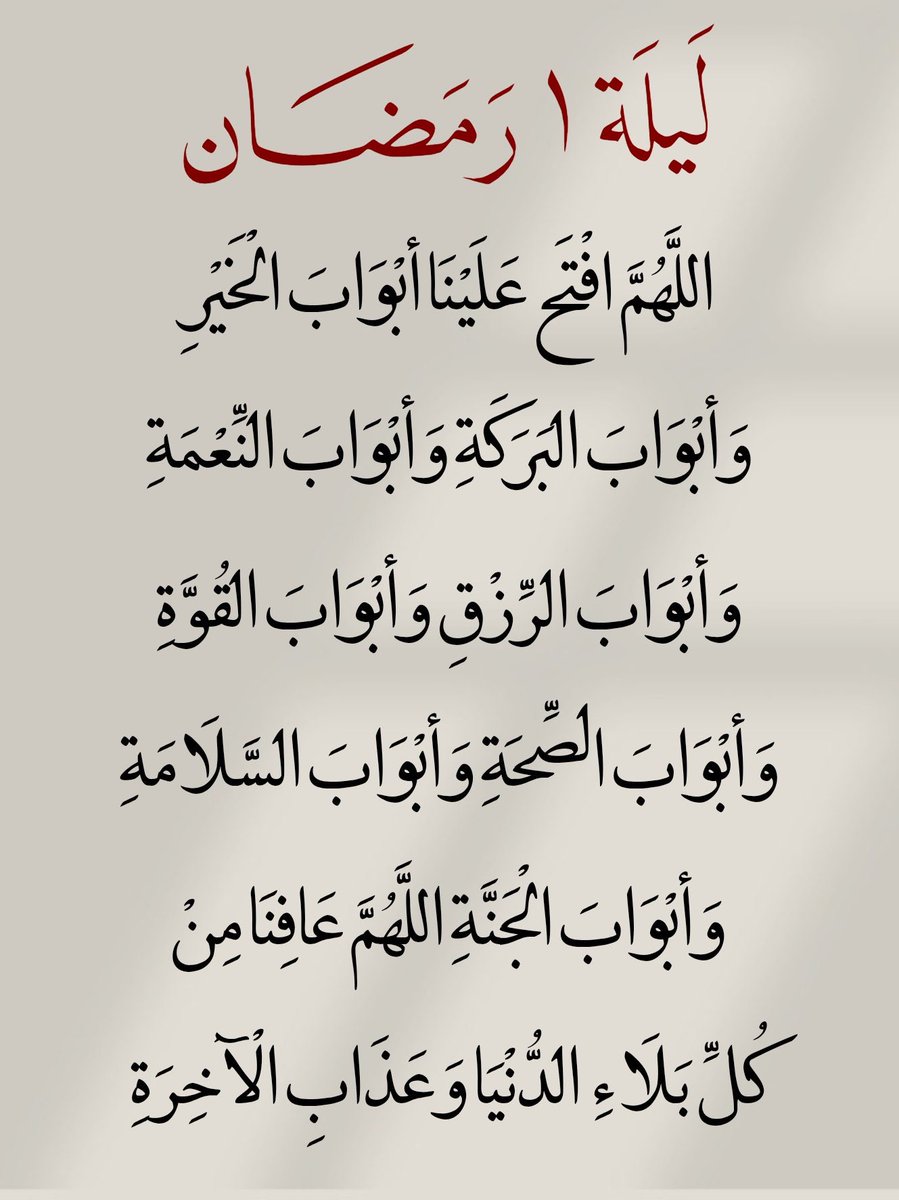 لَيلَة ١ رَمَضَان
اللَّهُمَّ افْتَح عَلَيْنَا أبْوَابَ الْخَيْرِ
وَأبْوَابَ البَرَكَةِ وَأبْوَابَ النِّعْمَةِ
وَأبْوَابَ الرِّزْقِ وَأبْوَابَ القُوَّةِ
وَأبْوَابَ الصِّحَةِ وَأبْوَابَ السَّلَامَةِ
وَأبْوَابَ الْجَنَّةِ اللَّهُمَّ عَافِنَا مِنْ
كُلِّ بَلَاءِ الدُّنْيَا وَعَذَابِ الْآخِرَةِ